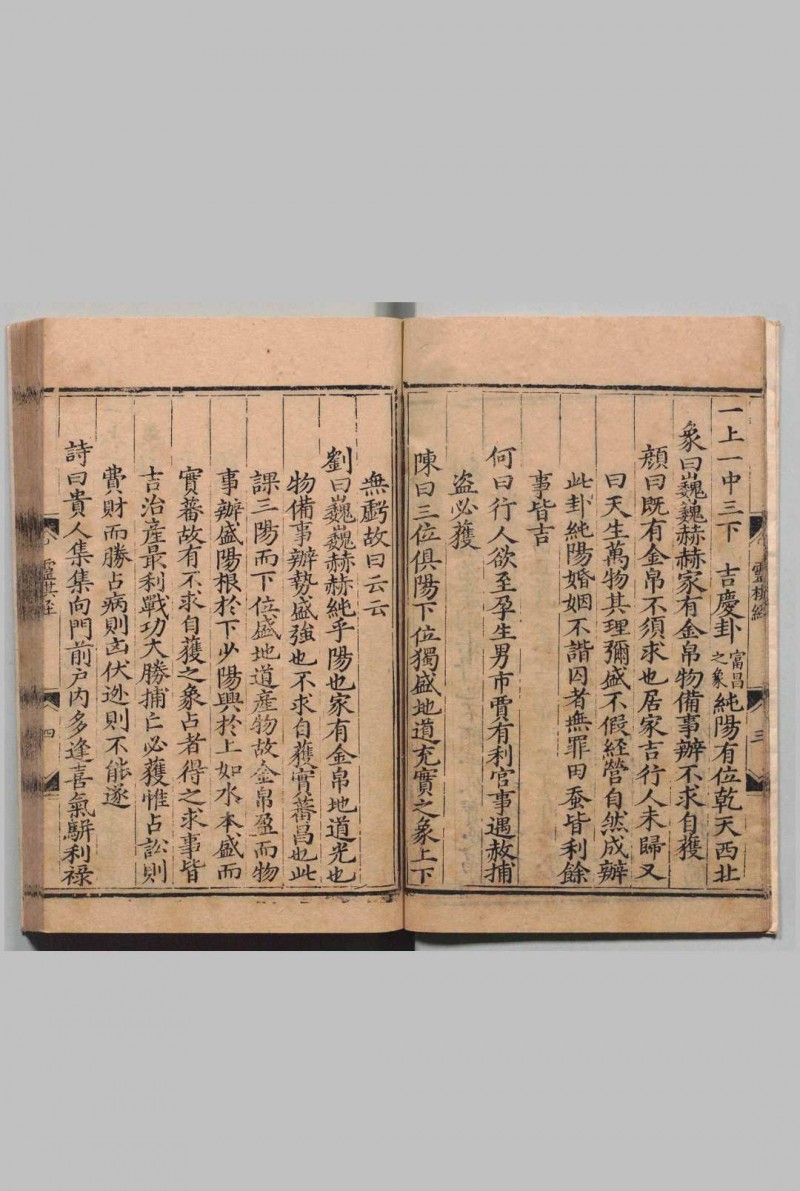 靈棋經
三
一上一中三下　吉慶卦富昌之象純陽有位乾天西北
象曰巍巍赫赫家有金帛物備事辦不求自獲
顔曰既有金帛不須求也居家吉行人未歸又
曰天生萬物其理彌盛不假経營自然成辦
此卦純陽婚姻不諧囚者無罪田蚕皆利餘
事皆吉
何曰行人欲至孕生男市賈有利官事遇赦捕
盗必獲
陳曰三位俱陽下位獨盛地道充實之象上下
無虧故曰云云
劉曰巍巍赫赫純乎陽也家有金帛地道光也
物備事辦勢盛強也不求自獲實蕃昌也此
課三陽而下位盛地道産物故金帛盈而物
事辦盛陽根於下少陽興於上如水本盛而
實蕃故有不求自獲之象占者得之求事皆
吉治産最利戰功大勝捕亡必獲惟占訟則
費財而勝占病則凶伏逃則不能遂
詩曰貴人集集向門前戸内多逢喜氣駢利禄
靈棋經
四